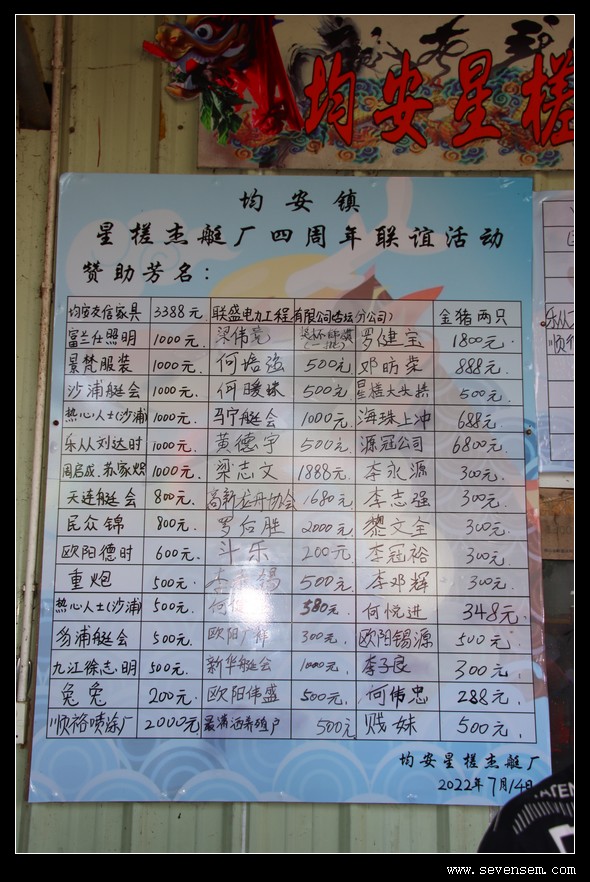 均安星槎
均安镇
星槎杰艇厂四周年联谊活动
赞助芳名：
均安友信家具 3388元 联盛电力工程有限公司(杏坛分公司) 金猪两只
富兰仕照明 1000元 梁伟亮 罗健宝 1800元
景梵服装 1000元 何培强 500元 邓昉荣 888元
沙浦艇会 1000元 何暖珠 500元 星槎大头拱 500元
热心人士(沙浦) 1000元 马宁艇会 1000元 海珠上冲 688元
乐从刘达时 1000元 黄德宇 500元 源冠公司 6800元
周启成、苏家炽 1000元 梁志文 1888元 李永源 300元
天连艇会 800元 高新龙舟协会 1680元 李志强 300元
民众锦 800元 罗启胜 2000元 黎文全 300元
欧阳德时 600元 斗乐 200元 李冠裕 300元
重炮 500元 锡 500元 李邓辉 300元
热心人士(沙浦) 500元 何 580元 何悦进 348元
多浦艇会 500元 欧阳广辉 300元 欧阳锡源 500元
九江徐志明 500元 新华艇会 1000元 李子良 300元
兔兔 200元 欧阳伟盛 500元 何伟忠 288元
顺裕喷涂厂 2000元 养殖户 500元 贱妹 500元
均安星槎杰艇厂
2022年7月14日
乐从
顺
www.sevensem.com